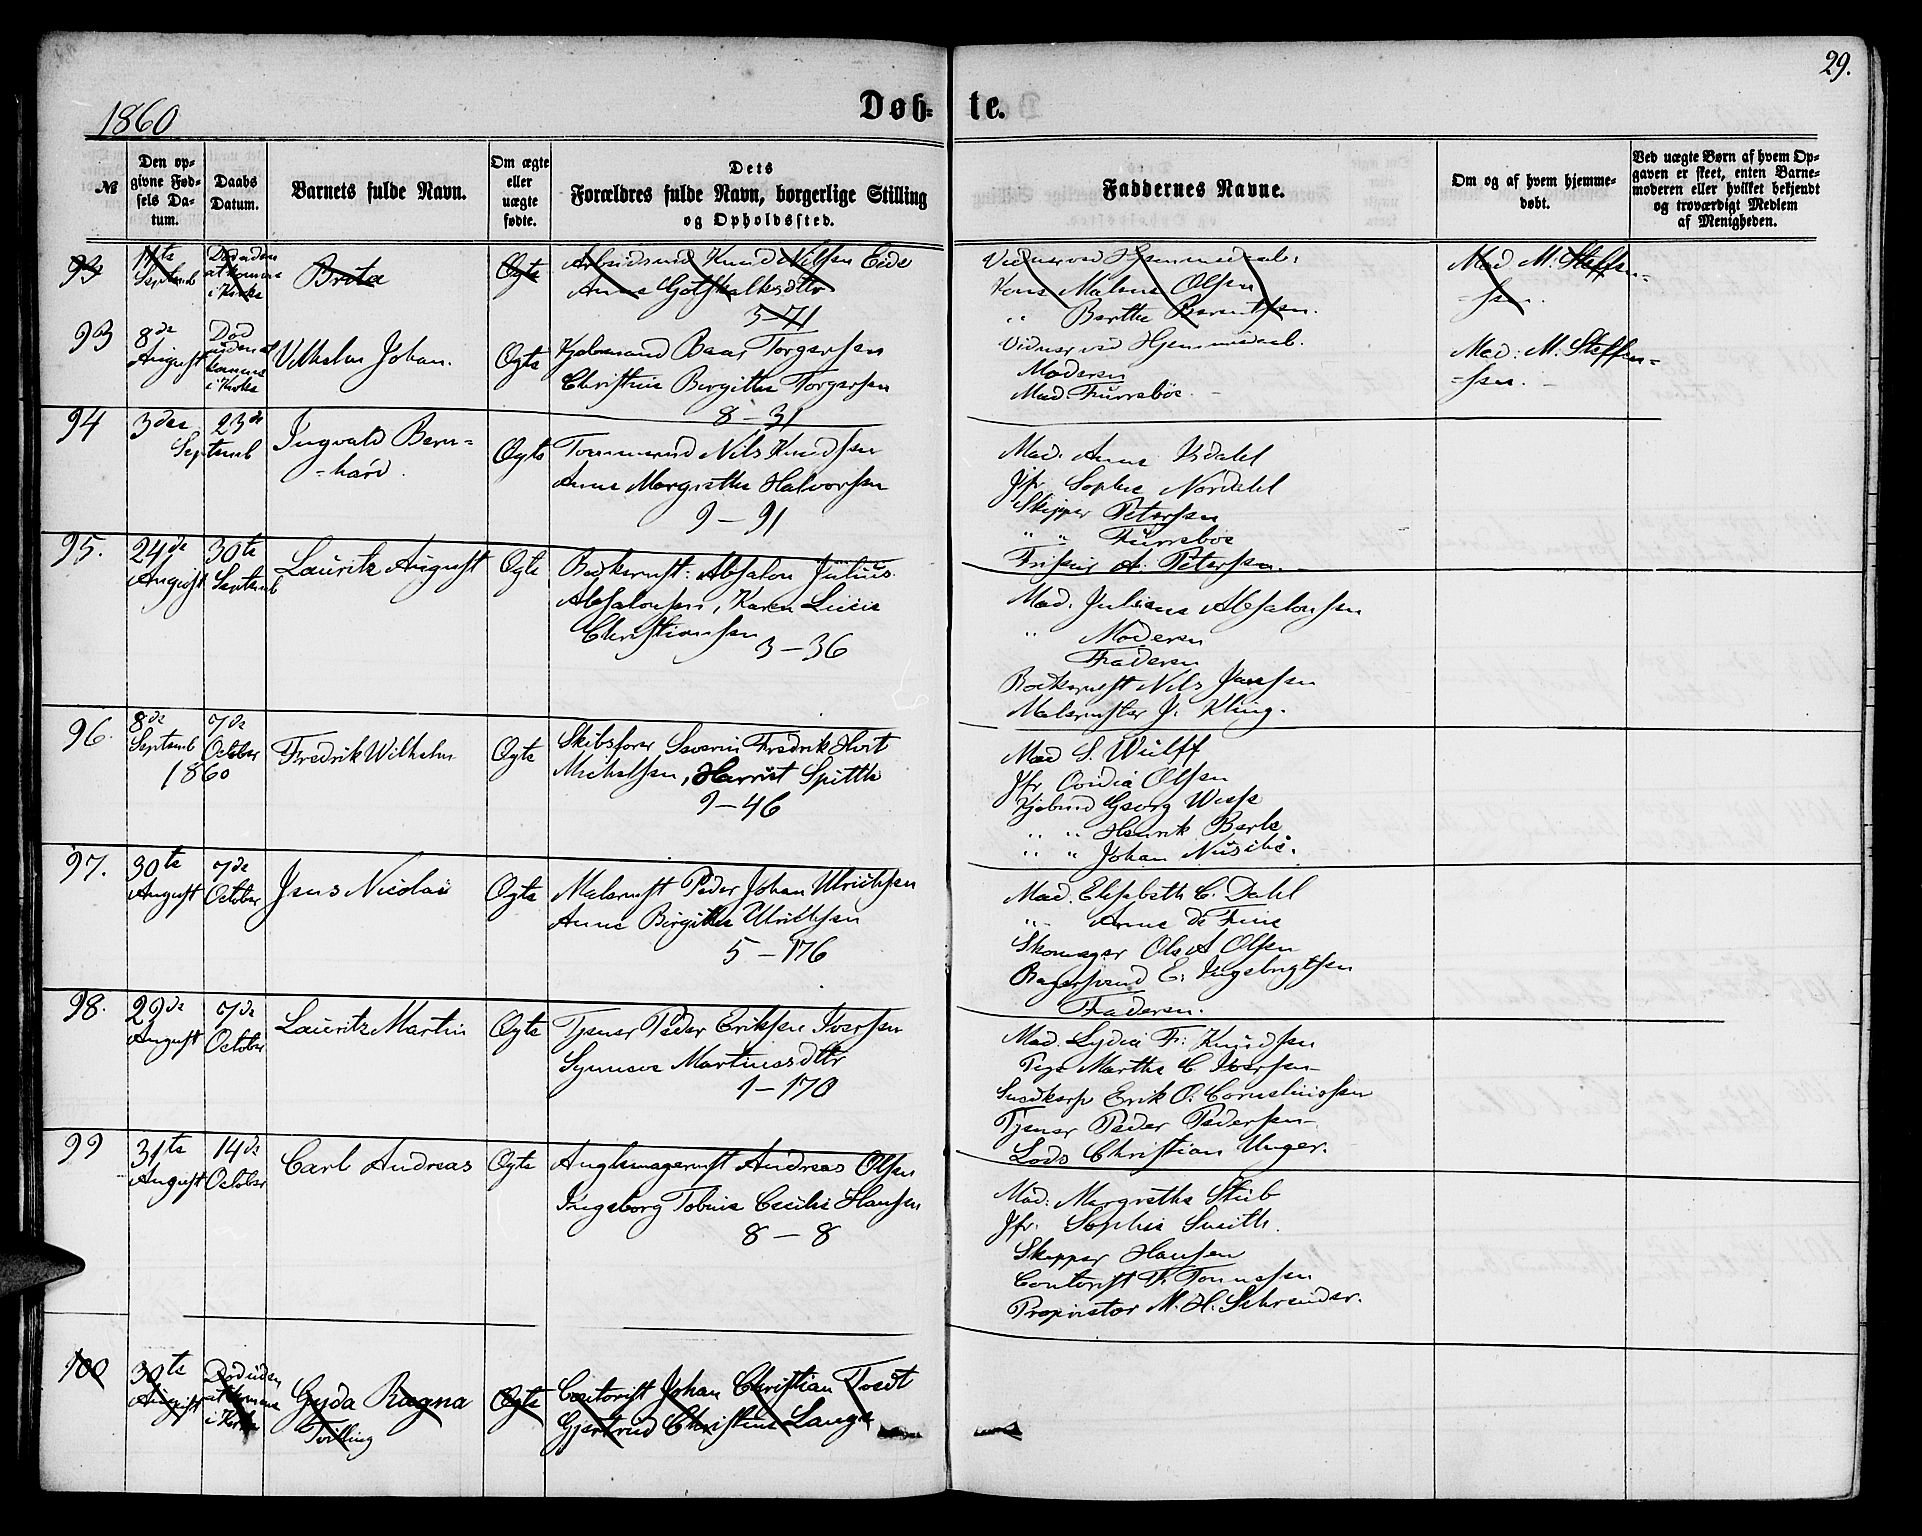 29.
1860
Døb-
te.
№
Den op-
givne Fød-
sels Da-
tum.
Daabs
Datum.
Barnets fulde Navn.
Om ægte
eller
uægte
fødte.
Dets
Forældres fulde Navn, borgerlige Stilling
og Opholdssted.
Faddernes Navne.
Om og af hvem hjemme-
døbt.
Ved uægte Børn af hvem Op-
gaven er skeet, enten Barne-
moderen eller hvilket bekjendt
og troværdigt Medlem
af Menigheden.
93
11te
Septemb
Død uden
at komme
i Kirke
Brita
Ægte
Arbeidsmd Knud Nilsen Eide
Anna Gotskalksdttr
3-71
Vidner ved Hjemmedaab:
Kone Malene Olsen
" Berthe Berentsen.
Mad M. Steffen-
-sen.
93
8de
August
Død
uden at
komme
i Kirke
Vilhelm Johan.
Ægte
Kjøbmand Baar Torgersen
Christine Birgitte Torgersen
8-31
Vidner ved Hjemmedaab.
Moderen
Mad. Furrebøe.
Mad: M. Steffen-
-sen.
94
3die
Septemb
23de
Ingvald Bern-
-hard.
Ægte
Tømmermd Nils Knudsen
Anne Margrethe Halvorsen
9-91
Mad. Anna Nordahl
Jfr Sophie Nordahl
Skipper Petersen
" " Furrebøe
Friseur A. Petersen.
95.
24de
August
30te
Septemb
Lauritz August
Ægte
Bødkermst: Absalon Julius
Absalonsen, Karen Lucie
Christiansen
3-36
Mad. Juliane Absalonsen
" Moderen
Faderen
Bødkermst Nils Jansen
Malermester J. Kling.
96.
8de
Septemb
1860
7de
October
Fredrik Wilhelm
Ægte
Skibsfører Severin Fredrik Hvit
Michelsen, Harriet Spitth
9-46
Mad S. Wulff
Jfr Cordia Olsen
Kjøbmd Georg Wiese
" " Henrik Berle
" " Johan Nusche.
97.
30te
August
7de
October
Jens Nicolai
Ægte
Malermst Peder Johan Ulrichsen
Anne Birgitte Ulrichsen
5-176
Mad. Elisabeth C. Dahl
" Anne de Fine
Skomager Ole A Olsen
Bagersvend E. Ingebrigtsen
Faderen.
98.
29de
August
7de
October
Lauritz Martin
Ægte
Tjener Peder Eriksen Iversen
Synneve Martinusdttr
1-170
Mad. Lydia Fr. Knudsen
Pige Marthe C Iversen
Snedkersv Erik O. Corneliussen
Tjener Peder Pedersen
Lods Christian Unger.
99
31te
August
14de
October
Carl Andreas
Ægte
Anglemagermst Andreas Olsen
Ingeborg Tobine Cecilie Hansen
8-8
Mad. Margrethe Stub
Jfr. Sophie Smith.
Skipper Hansen
Contorist Fr Tønnesen
Proprietær M. H. Schreuder.
100
30te
August
Død uden
at komme
i Kirke
Gyda Ragna
Tvilling
Ægte
Contorist Johan Christian Todt
Gjertrud Christine Lange